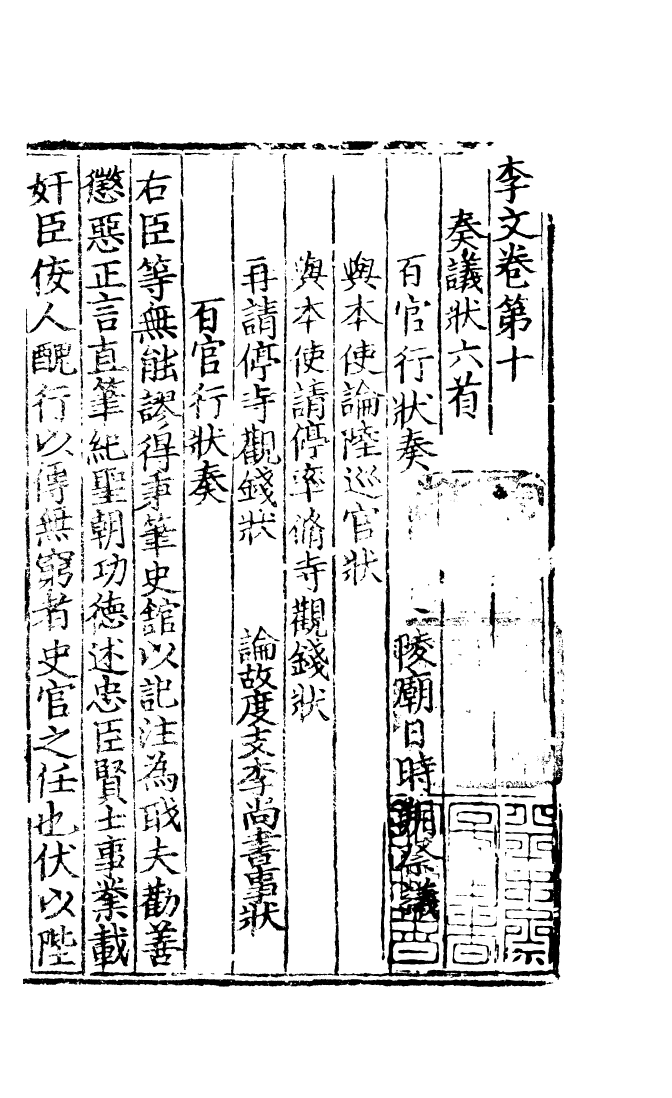 李文卷第十
奏議狀六首
百官行狀奏　陵廟日時朔祭議
與本使論陸巡官狀
與本使請停率脩寺觀錢狀
再請停寺觀錢狀　論故度支李尚書事狀
百官行狀奏
右臣等無能謬得秉筆史舘以記注為職夫勸善
懲惡正言直筆紀聖朝功德述忠臣賢士事業載
奸臣佞人醜行以傳無窮者史官之任也伏以陛